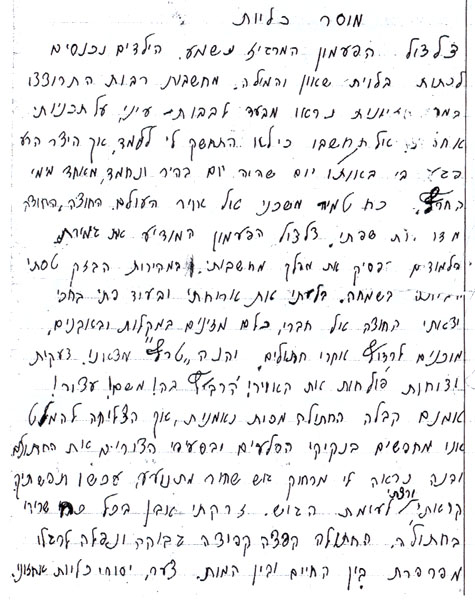 מוסר כליות
צלצול הפעמון המרגיז נשמע. הילדים נכנסים
לכתות בלוית שאון והמולה. מחשבות רבות התרוצצו
נראו מבעד לבבות עיני, על תכניות
אל תחשבו כי לא התחשק לי ללמד, אך היצר הרע
פגע בי באותו יום שהיה יום בהיר ונחמד, מאחד מימי
החרף. כח טמיר משכני אל אויר העולם. החוצה, החוצה
שפתי. צלצול הפעמון המודיע את גמירת
הלמודים הפסיק את מהלך מחשבותי. במהירות הבזק טסתי
הביתה בשמחה. בלעתי את ארוחתי ובעוד פתי בפי
יצאתי החוצה אל חברי, כלם מזוינים במקלות ובאבנים,
מוכנים לרדוף אחרי חתולים. והנה "טרף" מצאנו. צעקות
וצוחות פולחות את האויר! הרביץ בה! משם! עצור!
אמנם קבלה החתולה מכות נאמנות, אך הצליחה להמלט
אנו מחפשים בנקיקי הסלעים ובסעפי הצורים את החתולה
והנה נראה לי מרחוק גוש שחור מתנועע, עכשו תפשתיך
קראתי ורצתי לעומת הגוש. זרקתי אבן בכל כח שרירי
בחתולה. החתולה קפצה קפיצה גבוהה ונפלה לרגלי
מפרפרת בין החיים ובין המות. צער, יסורי כליות אחזוני.